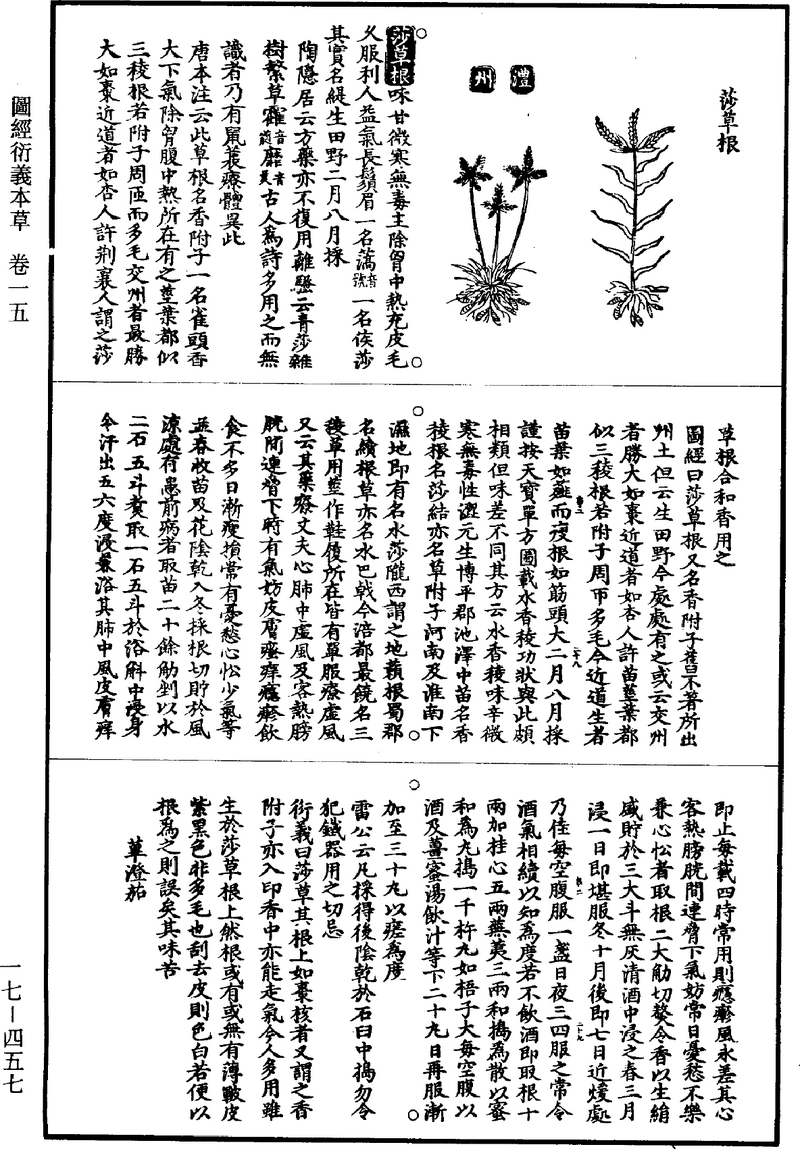 圖經衍義本草　卷一五
莎草根
澧州
莎草根味甘微寒無毒主除胷中熱充皮毛
乆服利人益氣長鬚眉一名薃音號一名侯莎
其實名緹生田野二月八月採
陶隱居云方藥亦不復用離騷云青莎雜
樹繁草靃音蘼音古人為詩多用之而無
識者乃有鼠蓑療體異此
唐本注云此草根名香附子一名雀頭香
大下氣除胷腹中熱所在有之莖葉都似
三稜根若附子周匝而多毛交州者最勝
大如棗近道者如杏人許荆襄人謂之莎
草根合和香用之
圖經曰莎草根又名香附子舊不著所出
州土但云生田野今處處有之或云交州
者勝大如棗近道者如杏人許苗莖葉都
似三稜根若附子周帀多毛今近道生者
苗葉如薤而瘦根如筯頭大二月八月採
謹按天寶單方圖載水香稜功狀與此頗
相類但味差不同其方云水香稜味辛微
寒無毒性澀元生博平郡池澤中苗名香
稜根名莎結亦名草附子河南及淮南下
濕地即有名水莎隴西謂之地藾根蜀郡
名續根草亦名水巴戟今涪都最饒名三
稜草用莖作鞋履所在皆有單服療虛風
又云其藥療丈夫心肺中虛風及客熱膀
胱間連脅下時有氣妨皮膚瘙痒癮疹飲
食不多日漸瘦損常有憂愁心忪少氣等
並春收苗及花陰乾入冬採根切貯於風
涼處有患前病者取苗二十餘觔剉以水
二石五斗煑取一石五斗於浴斛中浸身
令汗出五六度浸兼浴其肺中風皮膚痒
即止每載四時常用則癮瘮風永差其心
客熱膀胱間連脅下氣妨常日憂愁不樂
兼心忪者取根二大觔切熬令香以生絹
盛貯於三大斗無灰清酒中浸之春三月
浸一日即堪服冬十月後即七日近煖處
乃佳每空腹服一盞日夜三四服之常令
酒氣相續以知為度若不飲酒即取根十
兩加桂心五兩蕪荑三兩和搗為散以蜜
和為丸搗一千杵丸如梧子大每空腹以
酒及薑蜜湯飲汁等下二十丸日再服漸
加至三十丸以瘥為度
雷公云凡採得後陰乾於石臼中搗勿令
犯鐵器用之切忌
衍義曰莎草其根上如棗核者又謂之香
附子亦入印香中亦能走氣今人多用雖
生於莎草根上然根或有或無有薄皺皮
紫黑色非多毛也刮去皮則色白若便以
根為之則誤矣其味苦
蓽澄茄
一七－四五七